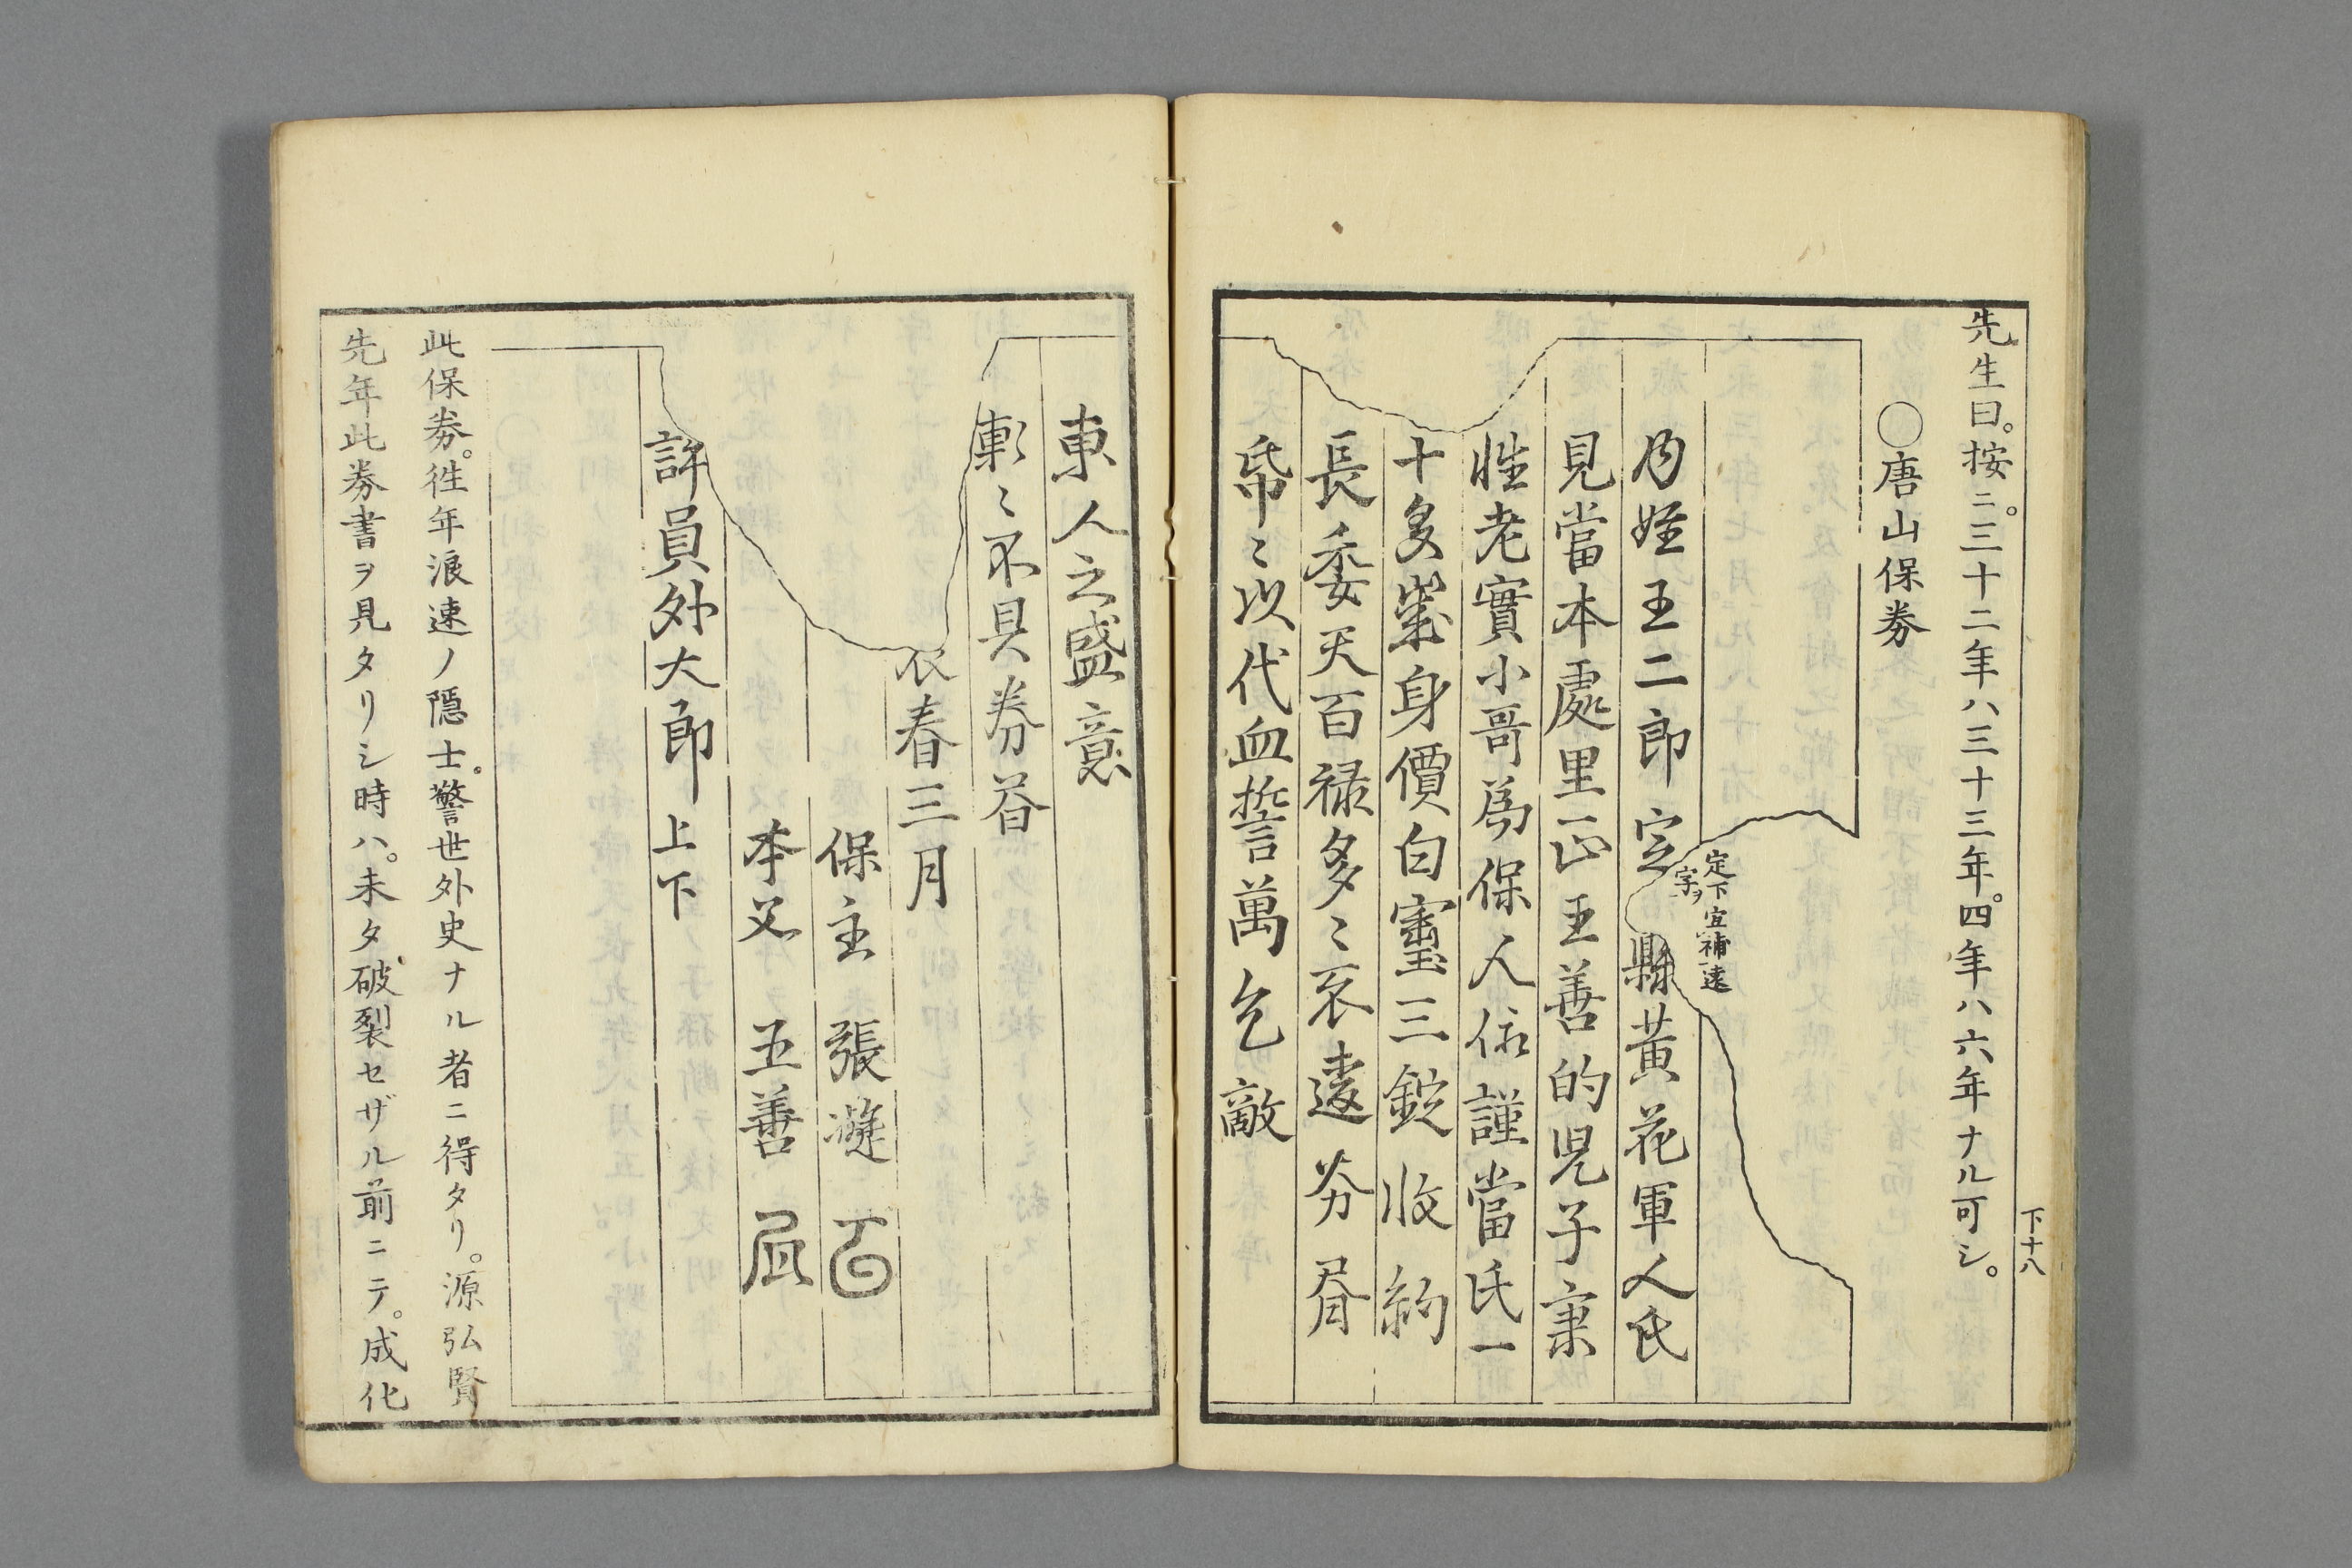 先生曰。按ニ。三十二年ハ三十三年。四年ハ六年ナル可シ。
下十八
◯唐山保券
定下宜補遠
字ヲ
乃姪王二郎定
縣黃花軍人氏
見當本處里正王善的児子秉
性老實小哥為保人依謹當氏一
十多歲身價白寶三錠收約
長委天百禄多〻不遠券
帋〻以代血誓萬乞敵
東人之盛意
慚〻不具券昚
春三月
保主 張
本父 五善
許員外大郎 上下
此保券。徃年浪速ノ隱士。警世外史ナル者ニ得タリ。源弘賢
先年此券書ヲ見タリシ時ハ。未タ破裂セザル前ニテ。成化